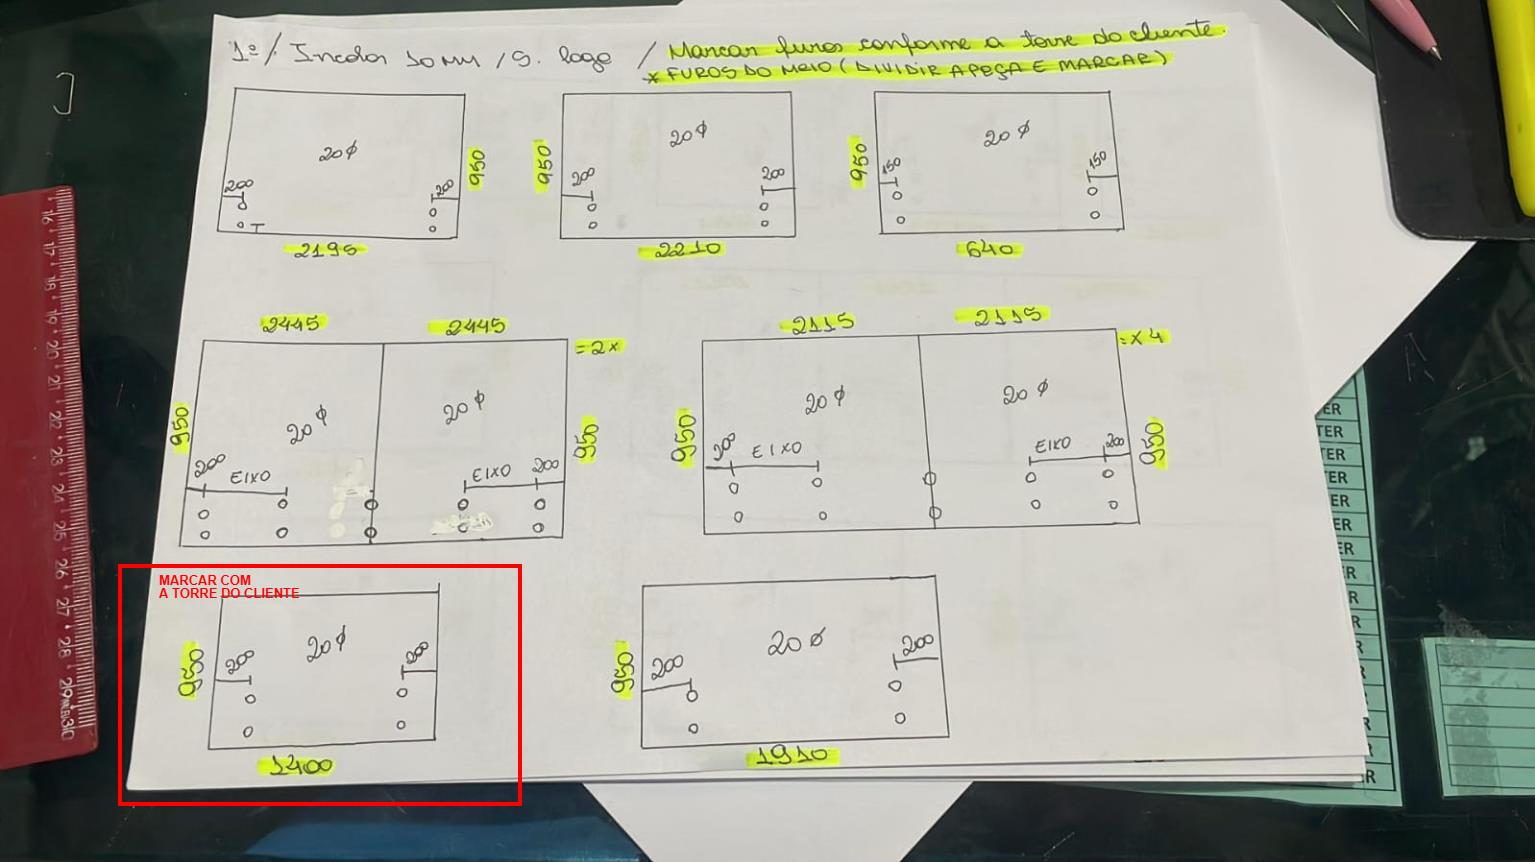 1º / Incolor 10 MM / S. logo / Marcar furos conforme a torre do cliente.
* FUROS DO MEIO (DIVIDIR A PEÇA E MARCAR)
20 φ
200
200
950
2195
950
20 φ
200
200
2210
950
20 φ
150
150
640
2445
2445
= 2x
950
20 φ
20 φ
950
200
EIXO
EIXO
200
2115
2115
= x 4
950
20 φ
20 φ
950
200
EIXO
EIXO
200
MARCAR COM
A TORRE DO CLIENTE
950
20 φ
200
200
1400
950
20 φ
200
200
1910
16 17 18 19 20 21 22 23 24 25 26 27 28 29 30
ER
TER
TER
ER
ER
ER
ER
R
R
R